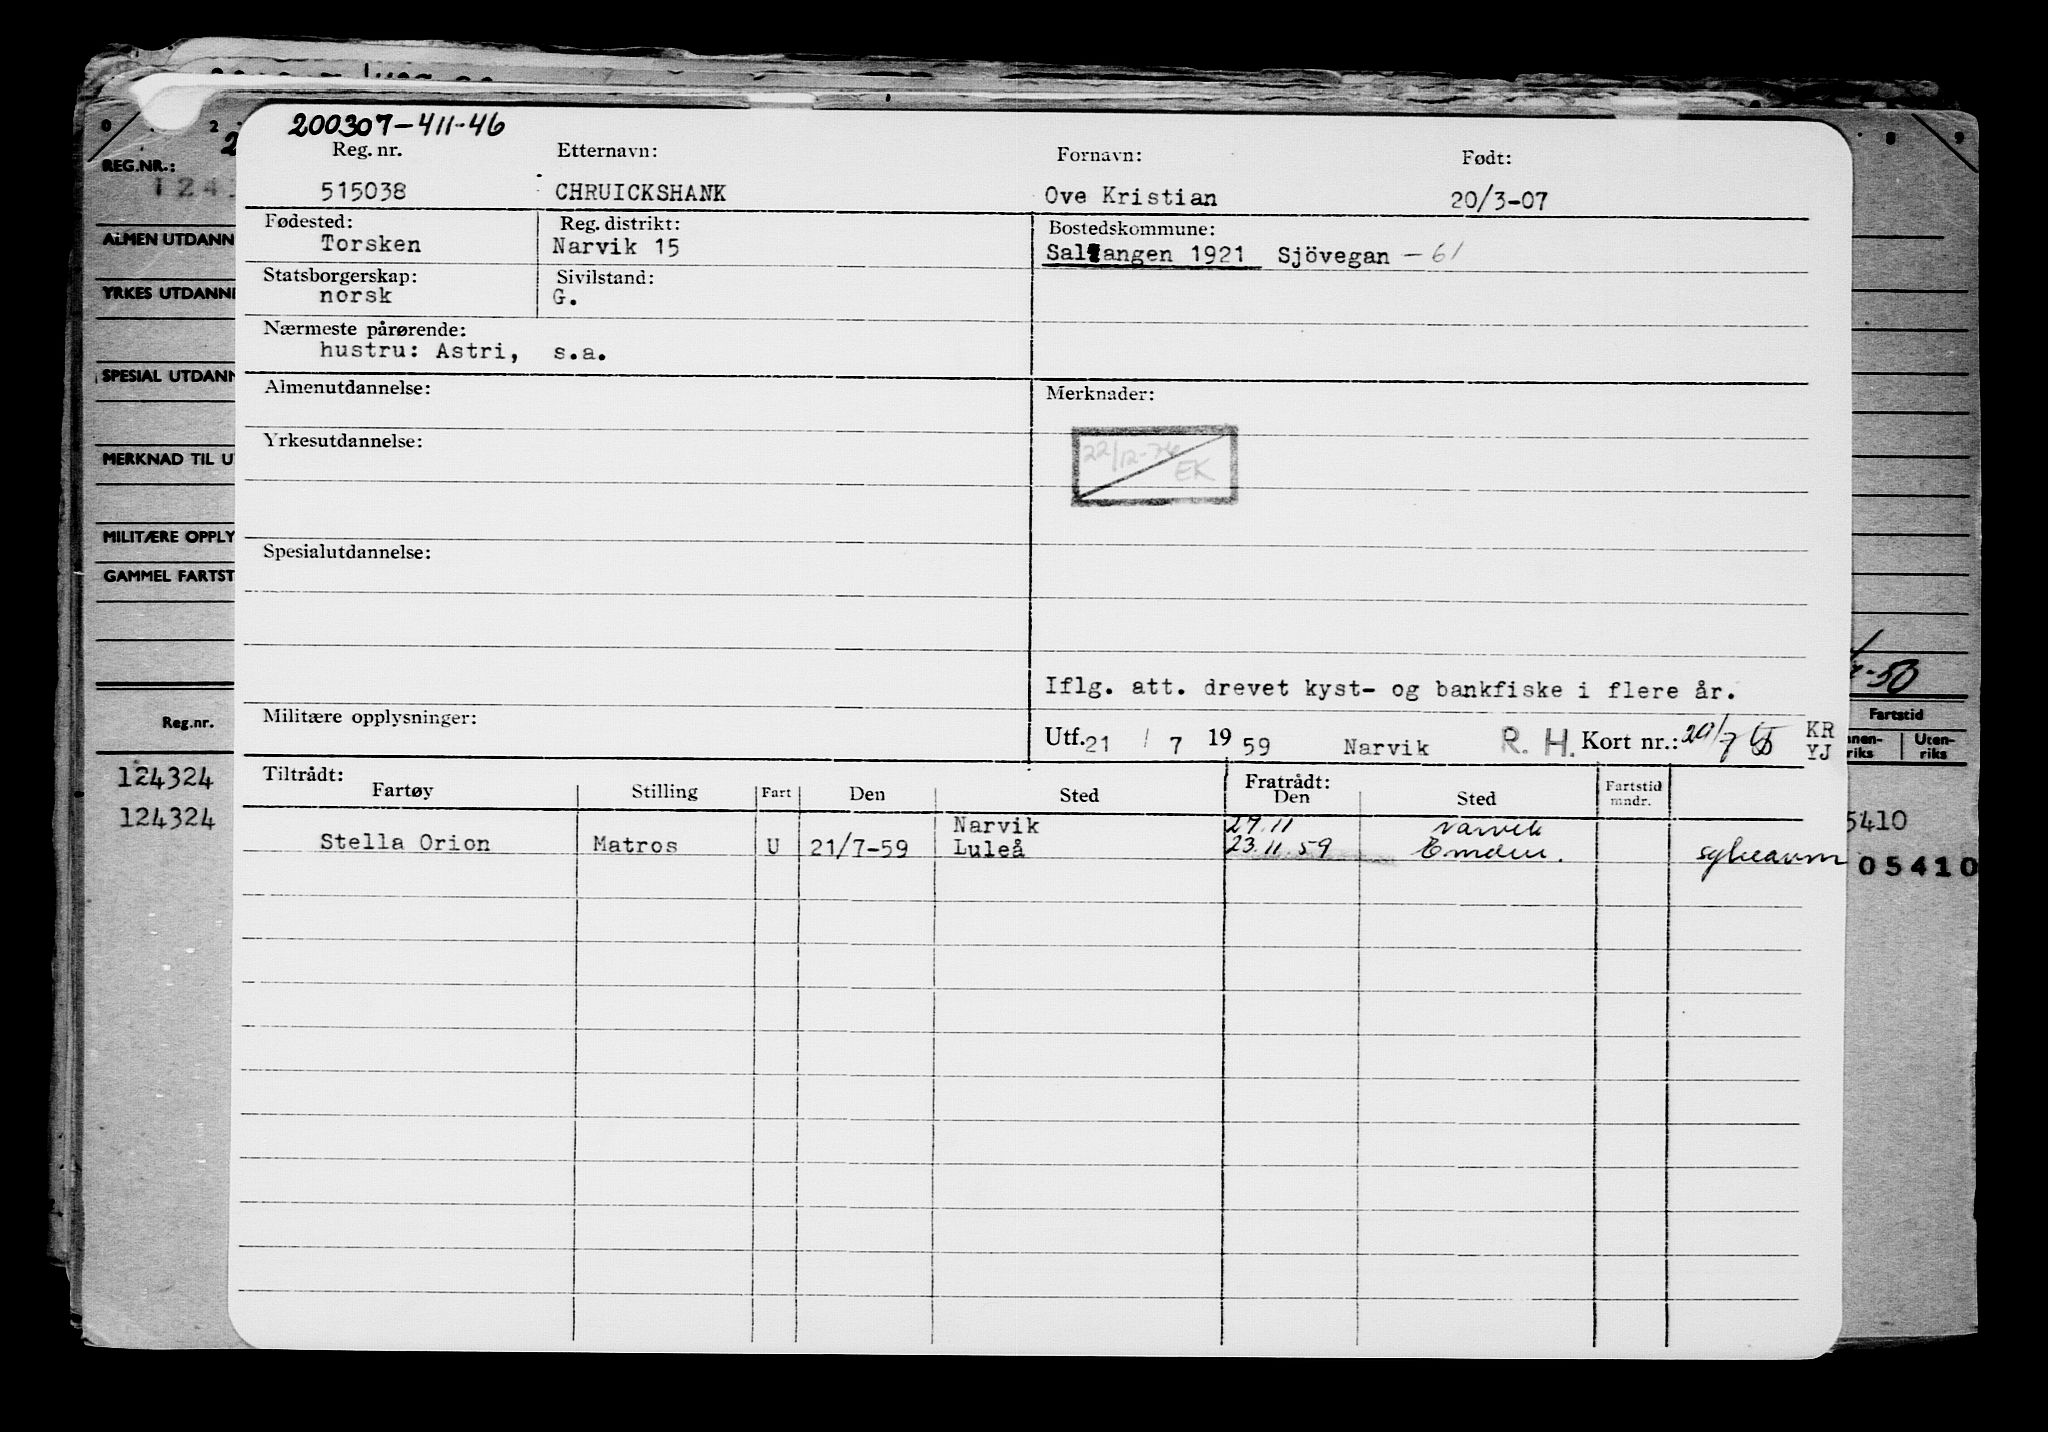 0 2 8 9
200307-411-46
Reg. nr. Etternavn: Fornavn: Født:
515038 CHRUICKSHANK Ove Kristian 20/3-07
Fødested: Reg. distrikt: Bostedskommune:
Torsken Narvik 15 Salangen 1921 Sjövegan - 61
Statsborgerskap: Sivilstand:
norsk G.
Nærmeste pårørende:
hustru: Astri, s.a.
Almenutdannelse: Merknader:
Yrkesutdannelse:
22/12-74
EK
Spesialutdannelse:
Iflg. att. drevet kyst- og bankfiske i flere år.
Militære opplysninger:
Utf. 21 / 7 19 59 Narvik R. H. Kort nr.: 20/7 65 KR
YJ
Tiltrådt: Fratrådt:
Fartøy Stilling Fart Den Sted Den Sted Fartstid mndr.
Narvik 27.11 Narvik
Stella Orion Matros U 21/7-59 Luleå 23.11 59 Emden.
REG.NR.:
ALMEN UTDANN
YRKES UTDANNE
SPESIAL UTDANN
MERKNAD TIL U
MILITÆRE OPPLY
GAMMEL FARTST
Reg.nr.
124324
124324
-50
Fartstid
nnen-
riks
Uten-
riks
5410
05410